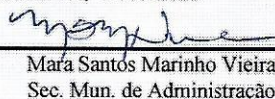 Mara Santos Marinho Vieira
Sec. Mun. de Administração